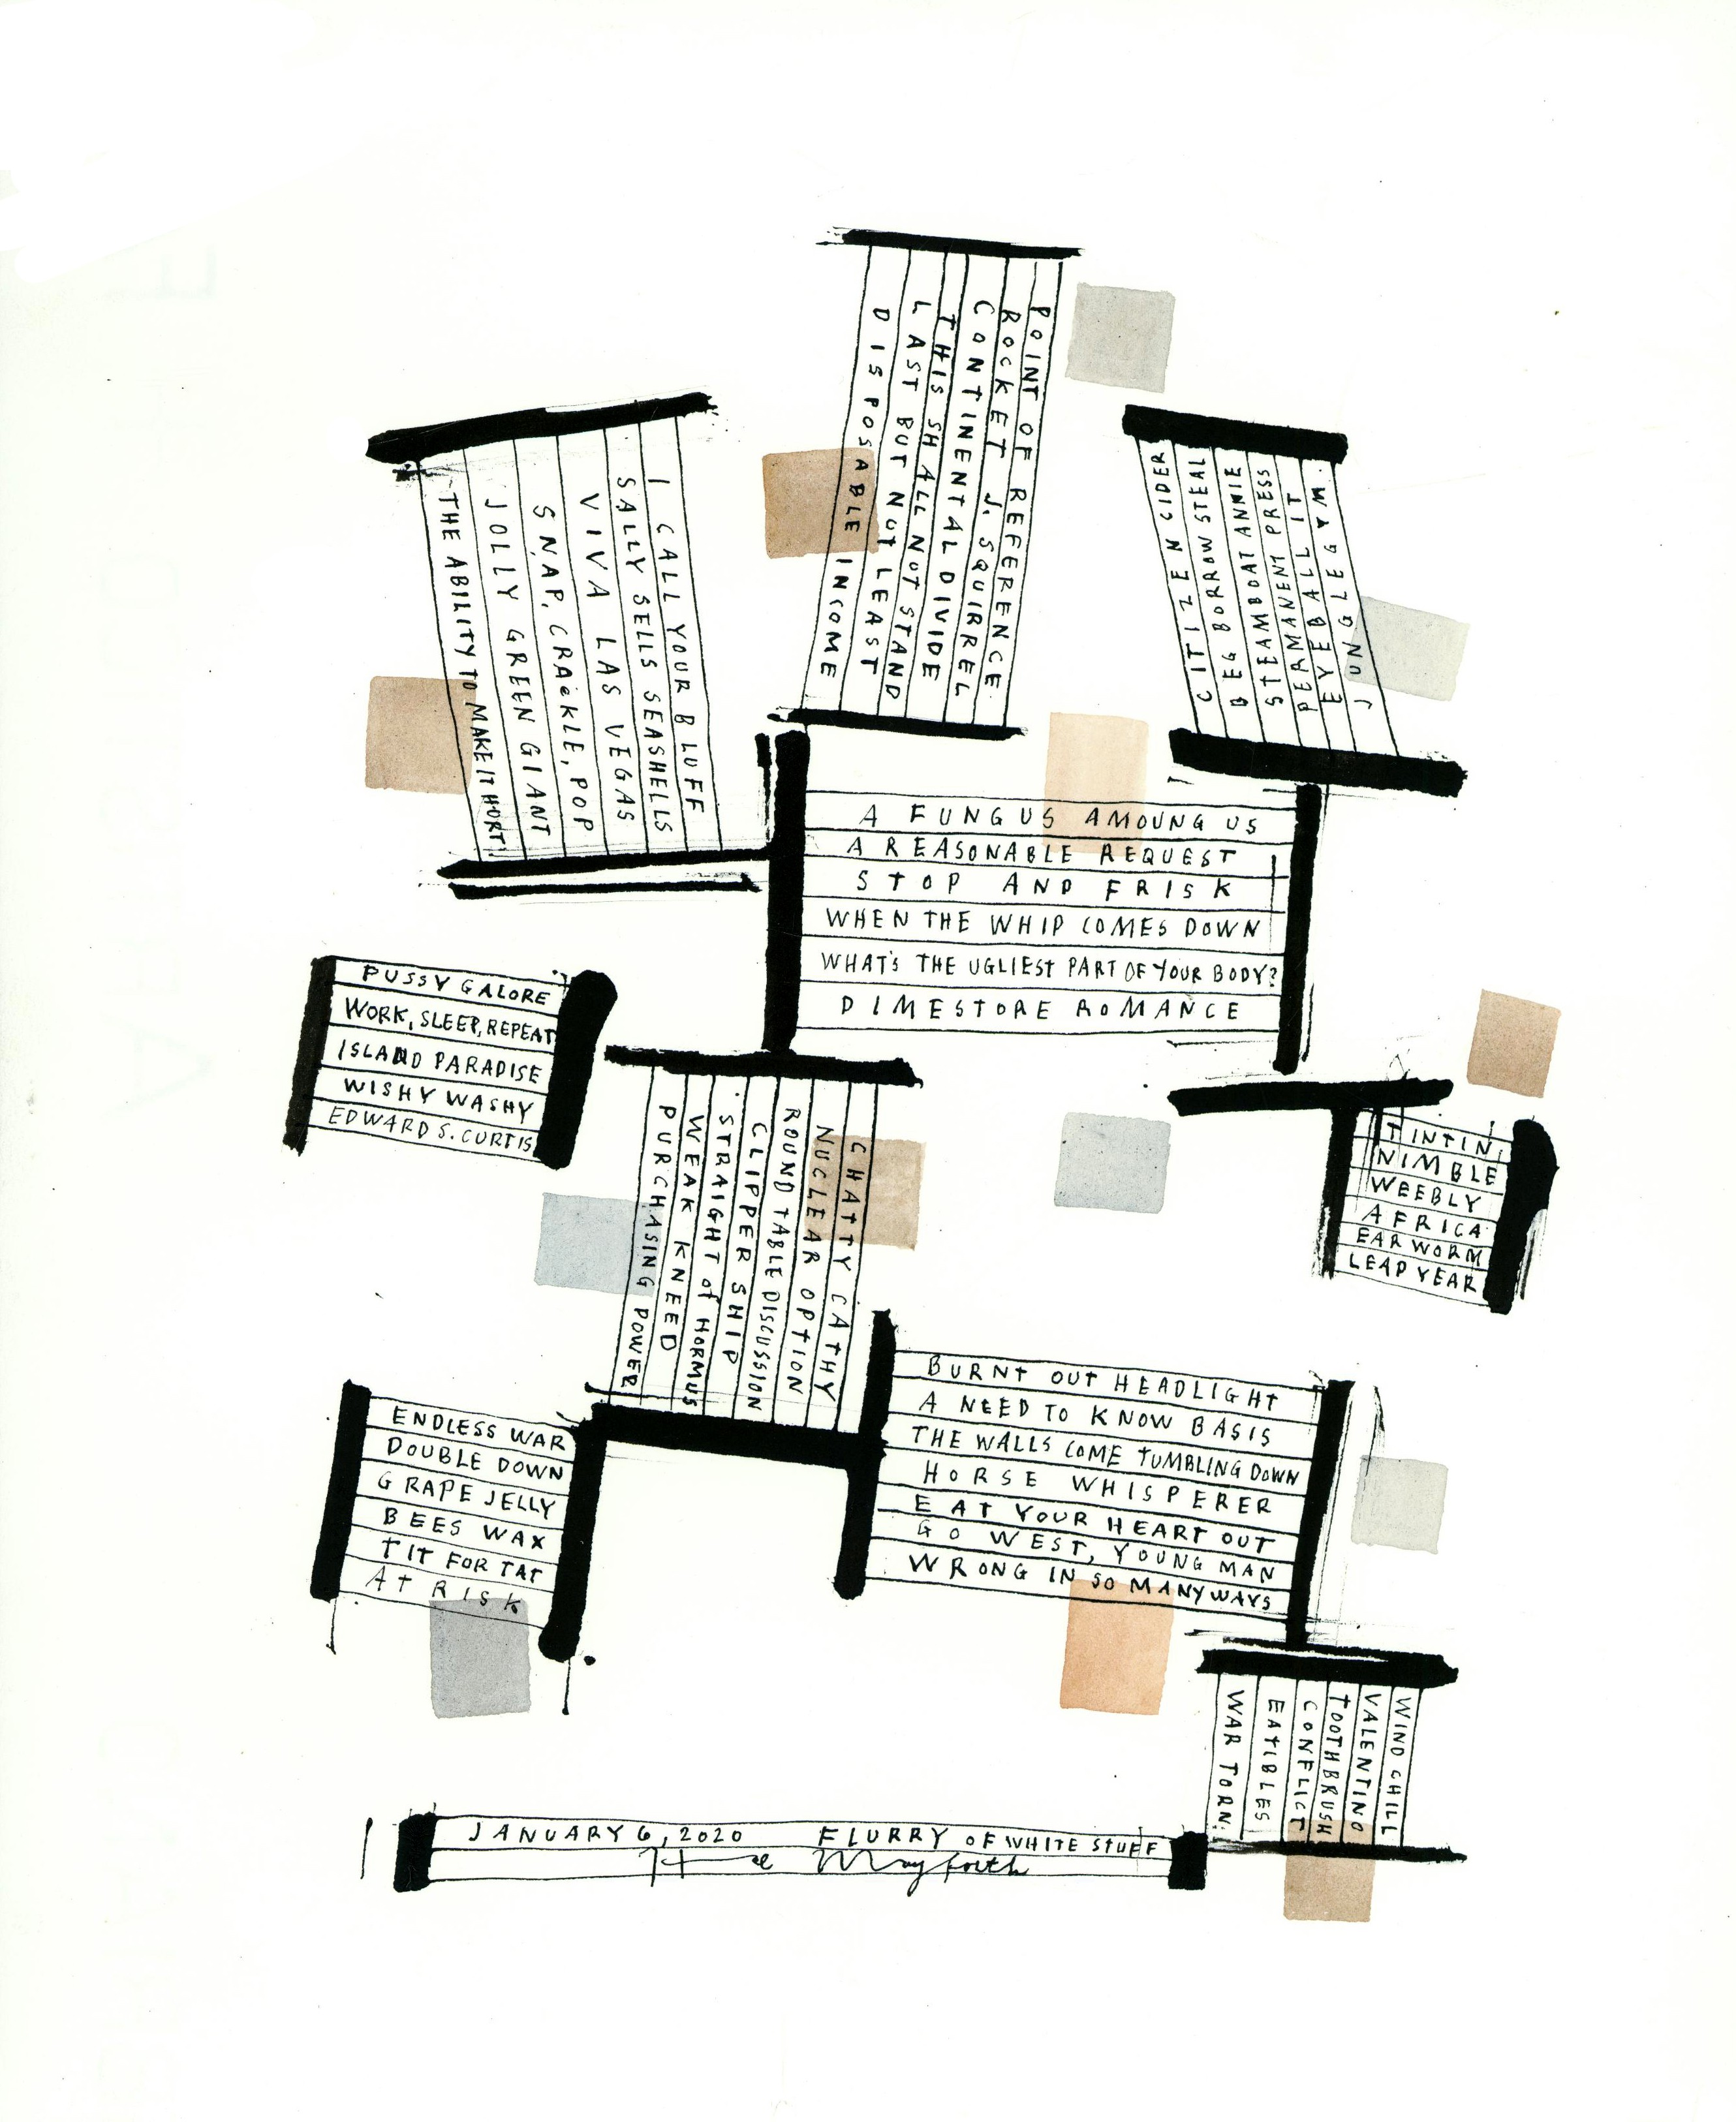 POINT OF REFERENCE
ROCKET J. SQUIRREL
CONTINENTAL DIVIDE
THIS SHALL NOT STAND
LAST BUT NOT LEAST
DISPOSABLE INCOME
I CALL YOUR BLUFF
SALLY SELLS SEASHELLS
VIVA LAS VEGAS
SNAP, CRACKLE, POP
JOLLY GREEN GIANT
THE ABILITY TO MAKE IT HURT!
CITIZEN CIDER
BEG BORROW STEAL
STEAMBOAT ANNIE
PERMANENT PRESS
EYEBALL IT
JUNGLE GYM.
A FUNGUS AMOUNG US
A REASONABLE REQUEST
STOP AND FRISK
WHEN THE WHIP COMES DOWN
WHAT'S THE UGLIEST PART OF YOUR BODY?
DIMESTORE ROMANCE
PUSSY GALORE
WORK, SLEEP, REPEAT
ISLAND PARADISE
WISHY WASHY
EDWARD S. CURTIS
CHATTY CATHY
NUCLEAR OPTION
ROUND TABLE DISCUSSION
CLIPPER SHIP
STRAIGHT OF HORMUS
WEAK KNEED
PURCHASING POWER
TINTIN
NIMBLE
WEEBLY
AFRICA
EAR WORM
LEAP YEAR
BURNT OUT HEADLIGHT
A NEED TO KNOW BASIS
THE WALLS COME TUMBLING DOWN
HORSE WHISPERER
EAT YOUR HEART OUT
GO WEST, YOUNG MAN
WRONG IN SO MANY WAYS
ENDLESS WAR
DOUBLE DOWN
GRAPE JELLY
BEES WAX
TIT FOR TAT
AT RISK
WIND CHILL
VALENTINO
TOOTHBRUSH
CONFLICT
EATIBLES
WAR TORN
JANUARY 6, 2020 FLURRY OF WHITE STUFF
Hal Mayforth